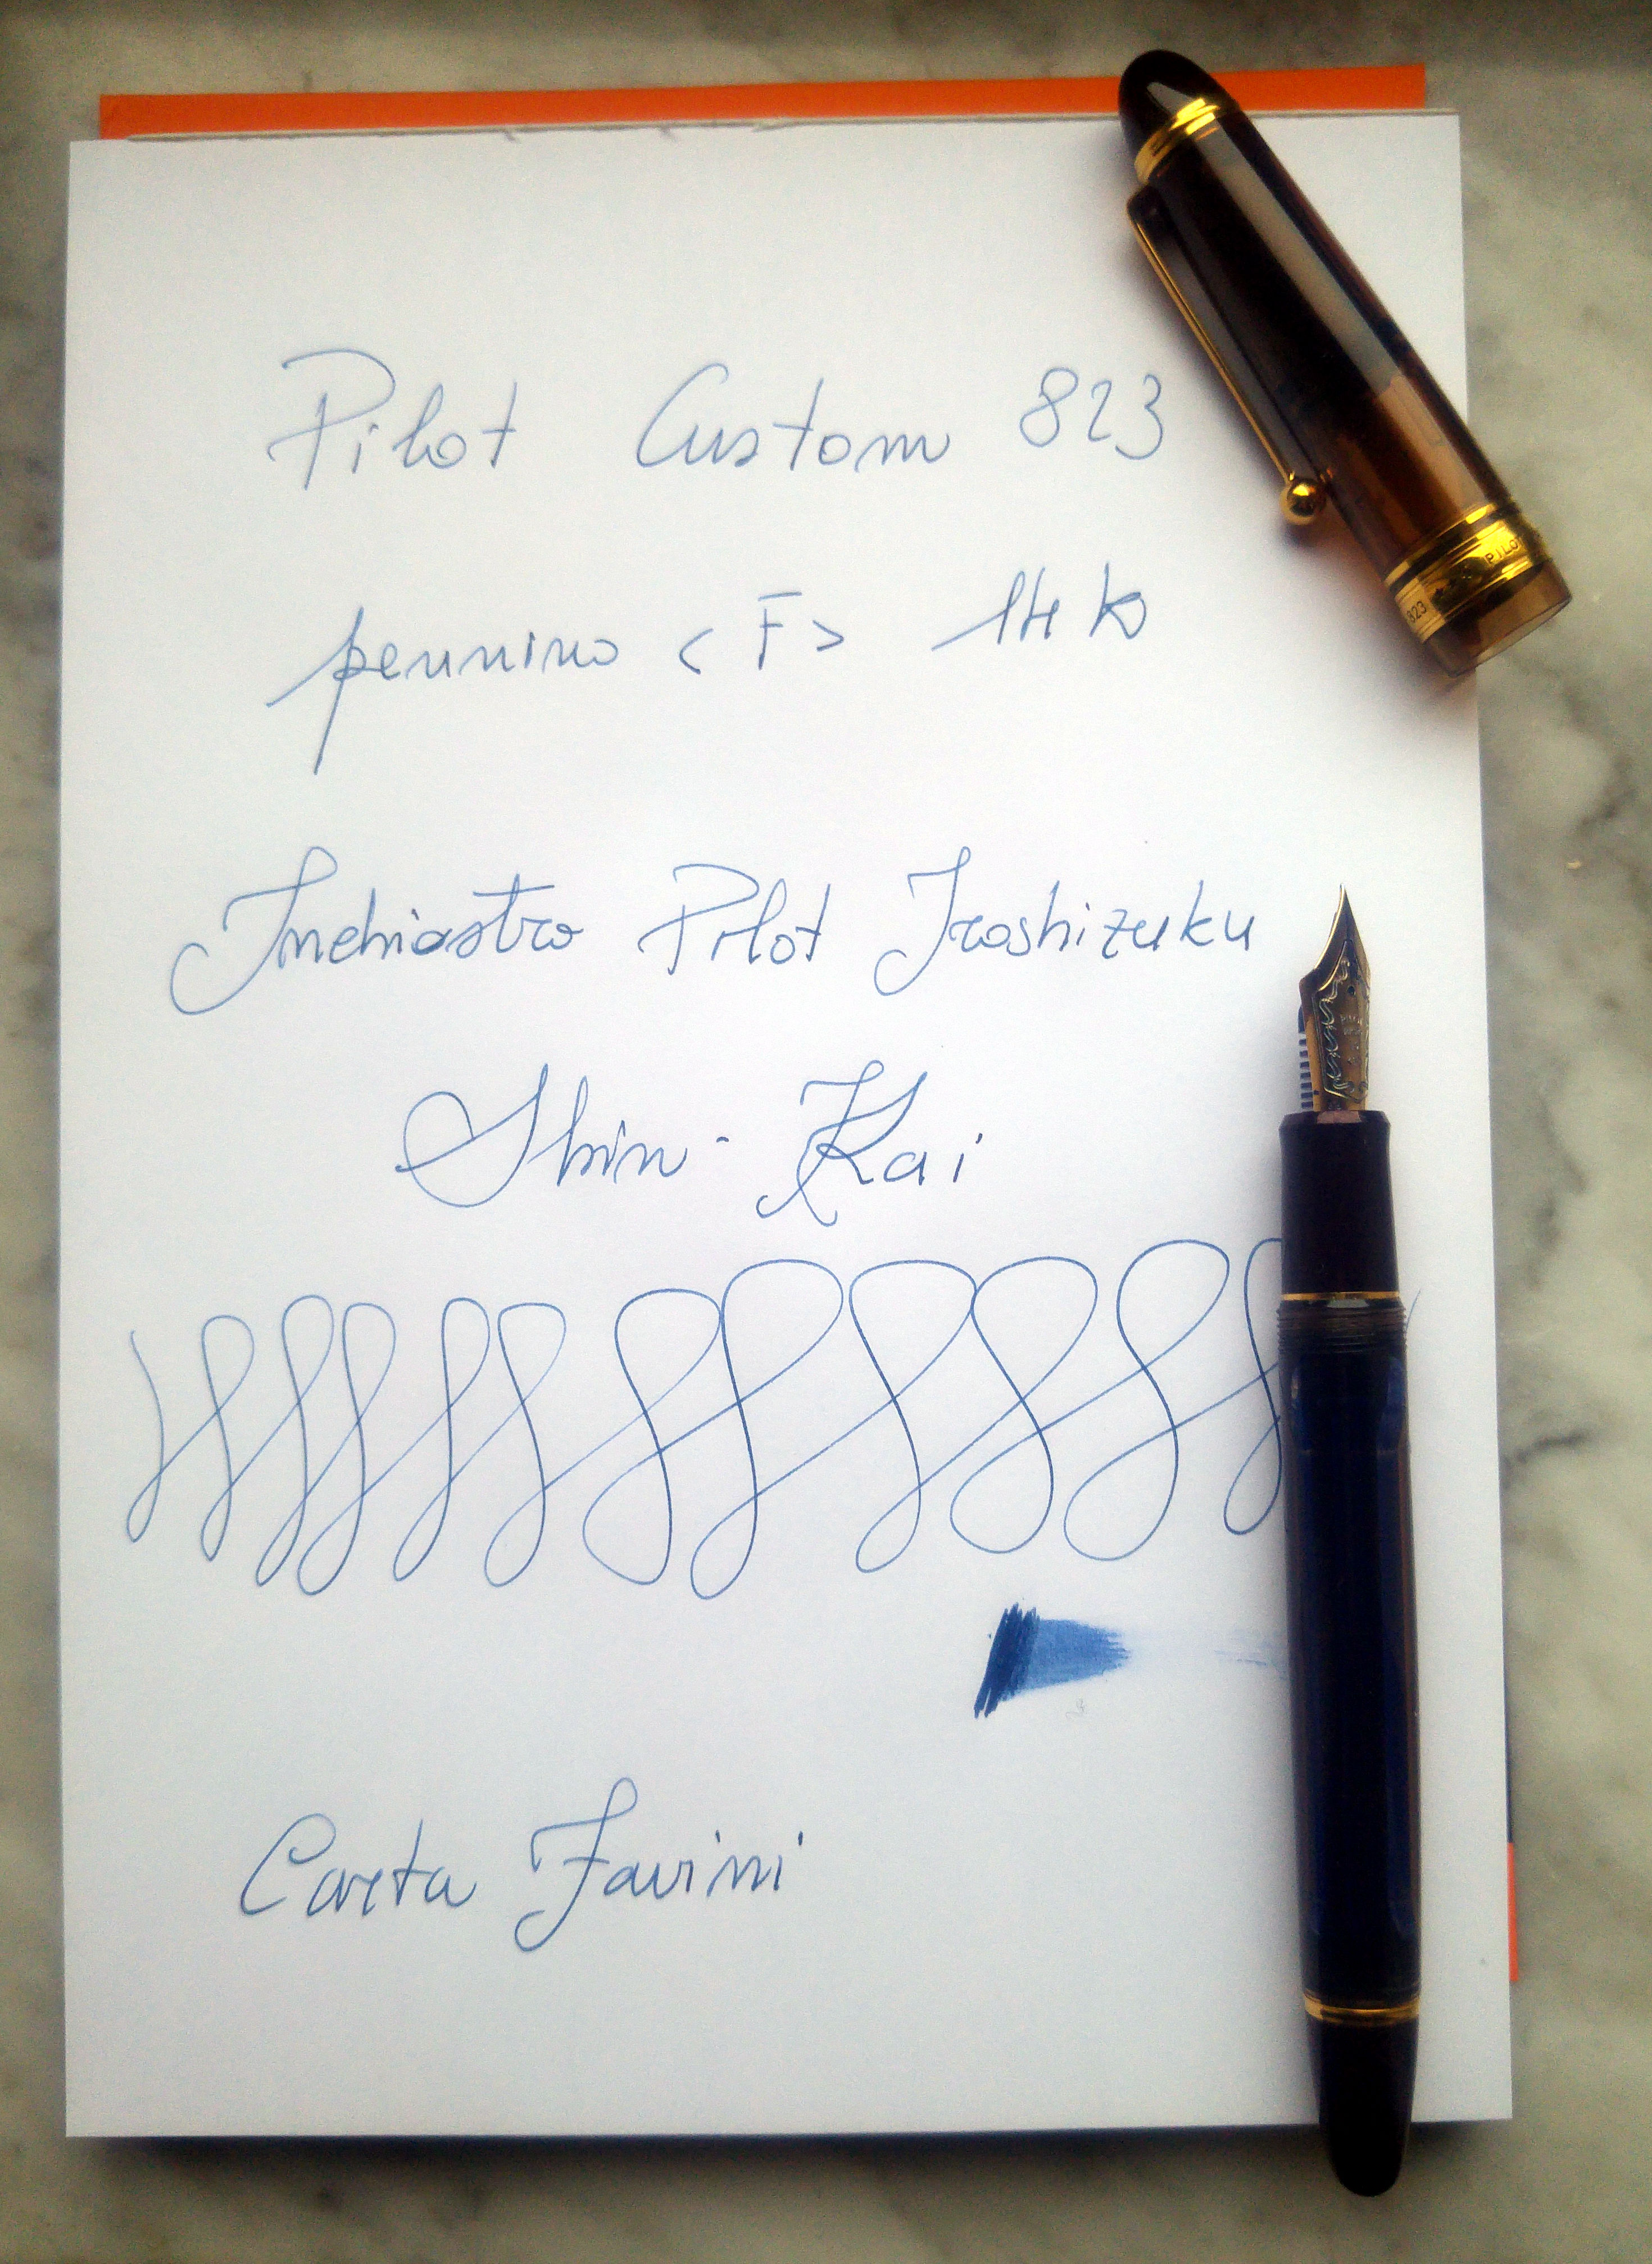 Pilot Custom 823
pennino <F> 14k
Inchiostro Pilot Iroshizuku
Shin-Kai
Carta Favini
PILOT
823